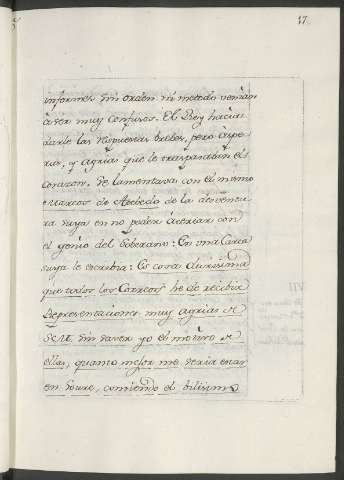 17
informes sin orden ni metodo venian
à ser muy confusos. El Rey hacia
darle las respuestas brebes, pero aspe
ras, y agrias que le traspasaban el
corazon. Se lamentava con el mismo
Marcos de Acebedo de la desventu
ra suya en no poder acertar con
el genio del Soberano: En una Carta
suya le escrebia: Es cosa durisima
que todos los Correos he de recibir
Representaciones muy agrias de
S.M. sin saver yo el motivo de
ellas, quanto mejor me seria estar
en comiendo el